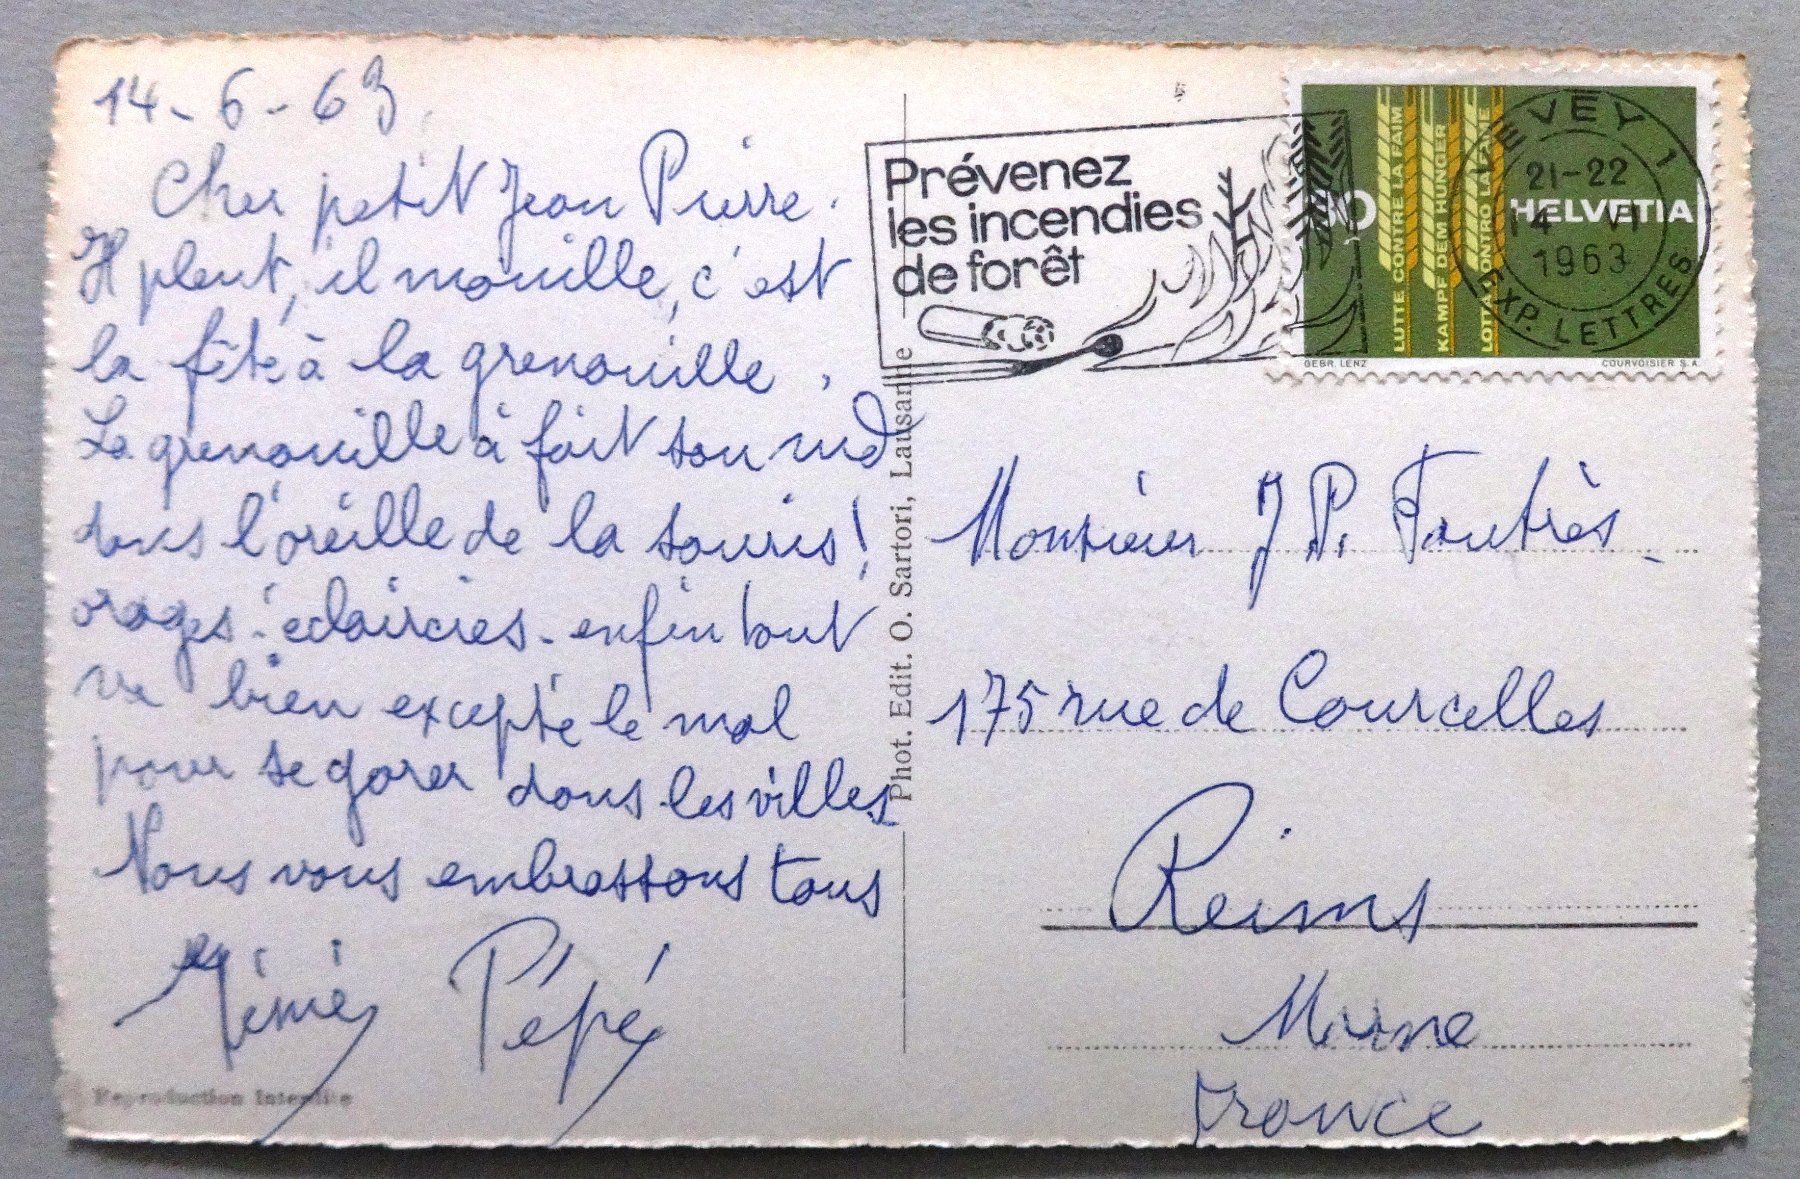 14-6-63.
Cher petit Jean Pierre.
Il pleut, il mouille, c'est
la fête à la grenouille.
La grenouille à fait son nid
dans l'oreille de la souris!
orages - éclaircies - enfin tout
va bien excepté le mal
pour se garer dans les villes
Nous vous embrassons tous
Mémé Pépé
Reproduction interdite
Phot. Edit. O. Sartori, Lausanne
Prévenez
les incendies
de forêt
VEVEY 1
21-22
14 VI
1963
EXP. LETTRES
HELVETIA
LUTTE CONTRE LA FAIM
KAMPF DEM HUNGER
LOTTA CONTRO LA FAME
GEBR. LENZ
COURVOISIER S.A.
Monsieur J.P.
175 rue de Courcelles
Reims
Marne
France